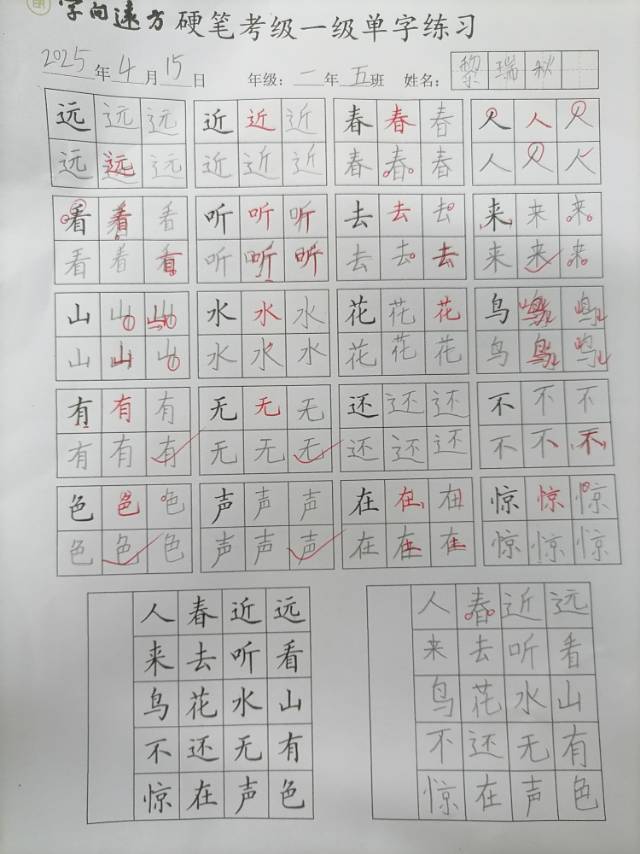 字向遠方 硬笔考级一级单字练习
2025年4月15日 年级：二年五班 姓名：黎瑞秋
远远远 近近近 春春春 人人人
远远远 近近近 春春春 人人人
看看看 听听听 去去去 来来来
看看看 听听听 去去去 来来来
山山山 水水水 花花花 鸟鸟鸟
山山山 水水水 花花花 鸟鸟鸟
有有有 无无无 还还还 不不不
有有有 无无无 还还还 不不不
色色色 声声声 在在在 惊惊惊
色色色 声声声 在在在 惊惊惊
人春近远
来去听看
鸟花水山
不还无有
惊在声色
人春近远
来去听看
鸟花水山
不还无有
惊在声色